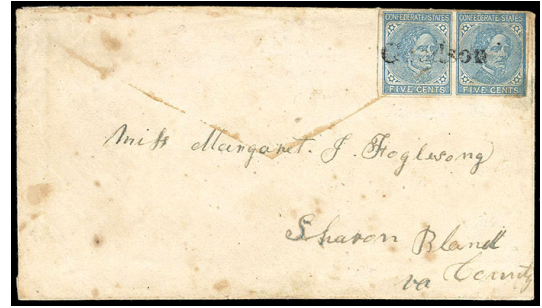 CONFEDERATE STATES CONFEDERATE STATES
FIVE CENTS FIVE CENTS
Miss Margaret. J. Foglesong
Sharon Bland
va County